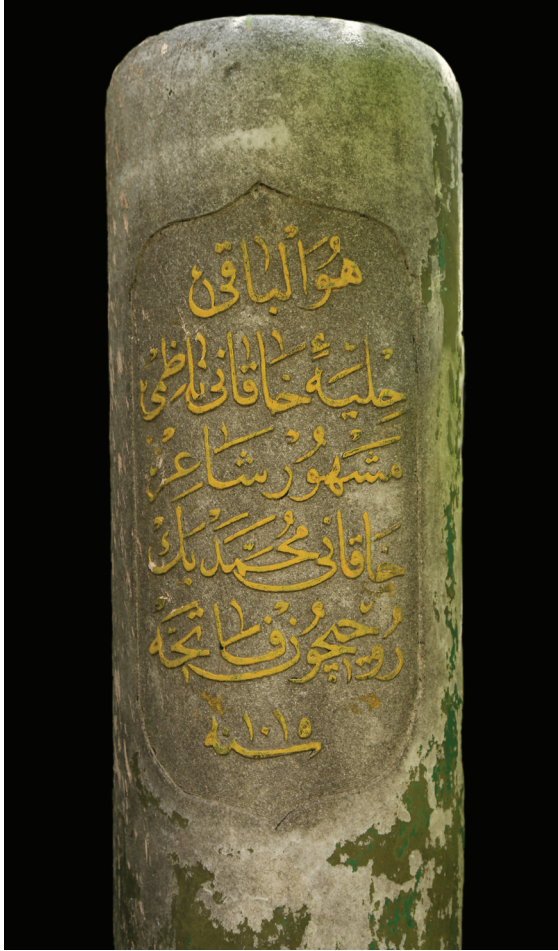 هُوَ الْباقی
حِلْيَۀِ خَاقَانی نَاظِمِی
مَشْهُورْ شَاعِرْ
خَاقَانی مُحَمَّدْ بَكْ
رُوحِيچُونْ فَاتِحَه
سنه ١٠١٥